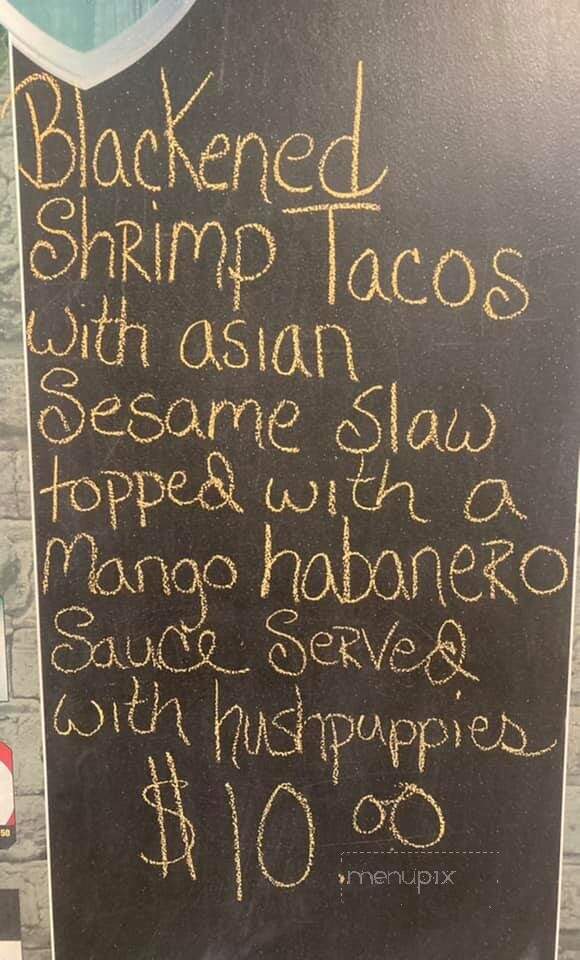 Blackened
Shrimp Tacos
with asian
Sesame slaw
topped with a
Mango habanero
Sauce Served
with hushpuppies
$10.00
menupix
50